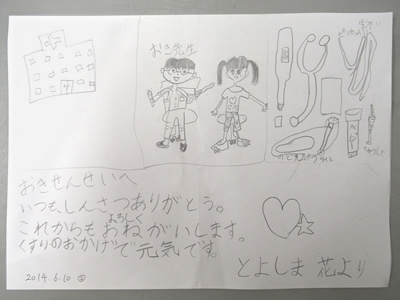 おき先生
おきせんせいへ
いつも、しんさつありがとう。
これからもよろしくおねがいします。
くすりのおかげで元気です。
とよしま 花より
2014.6.10